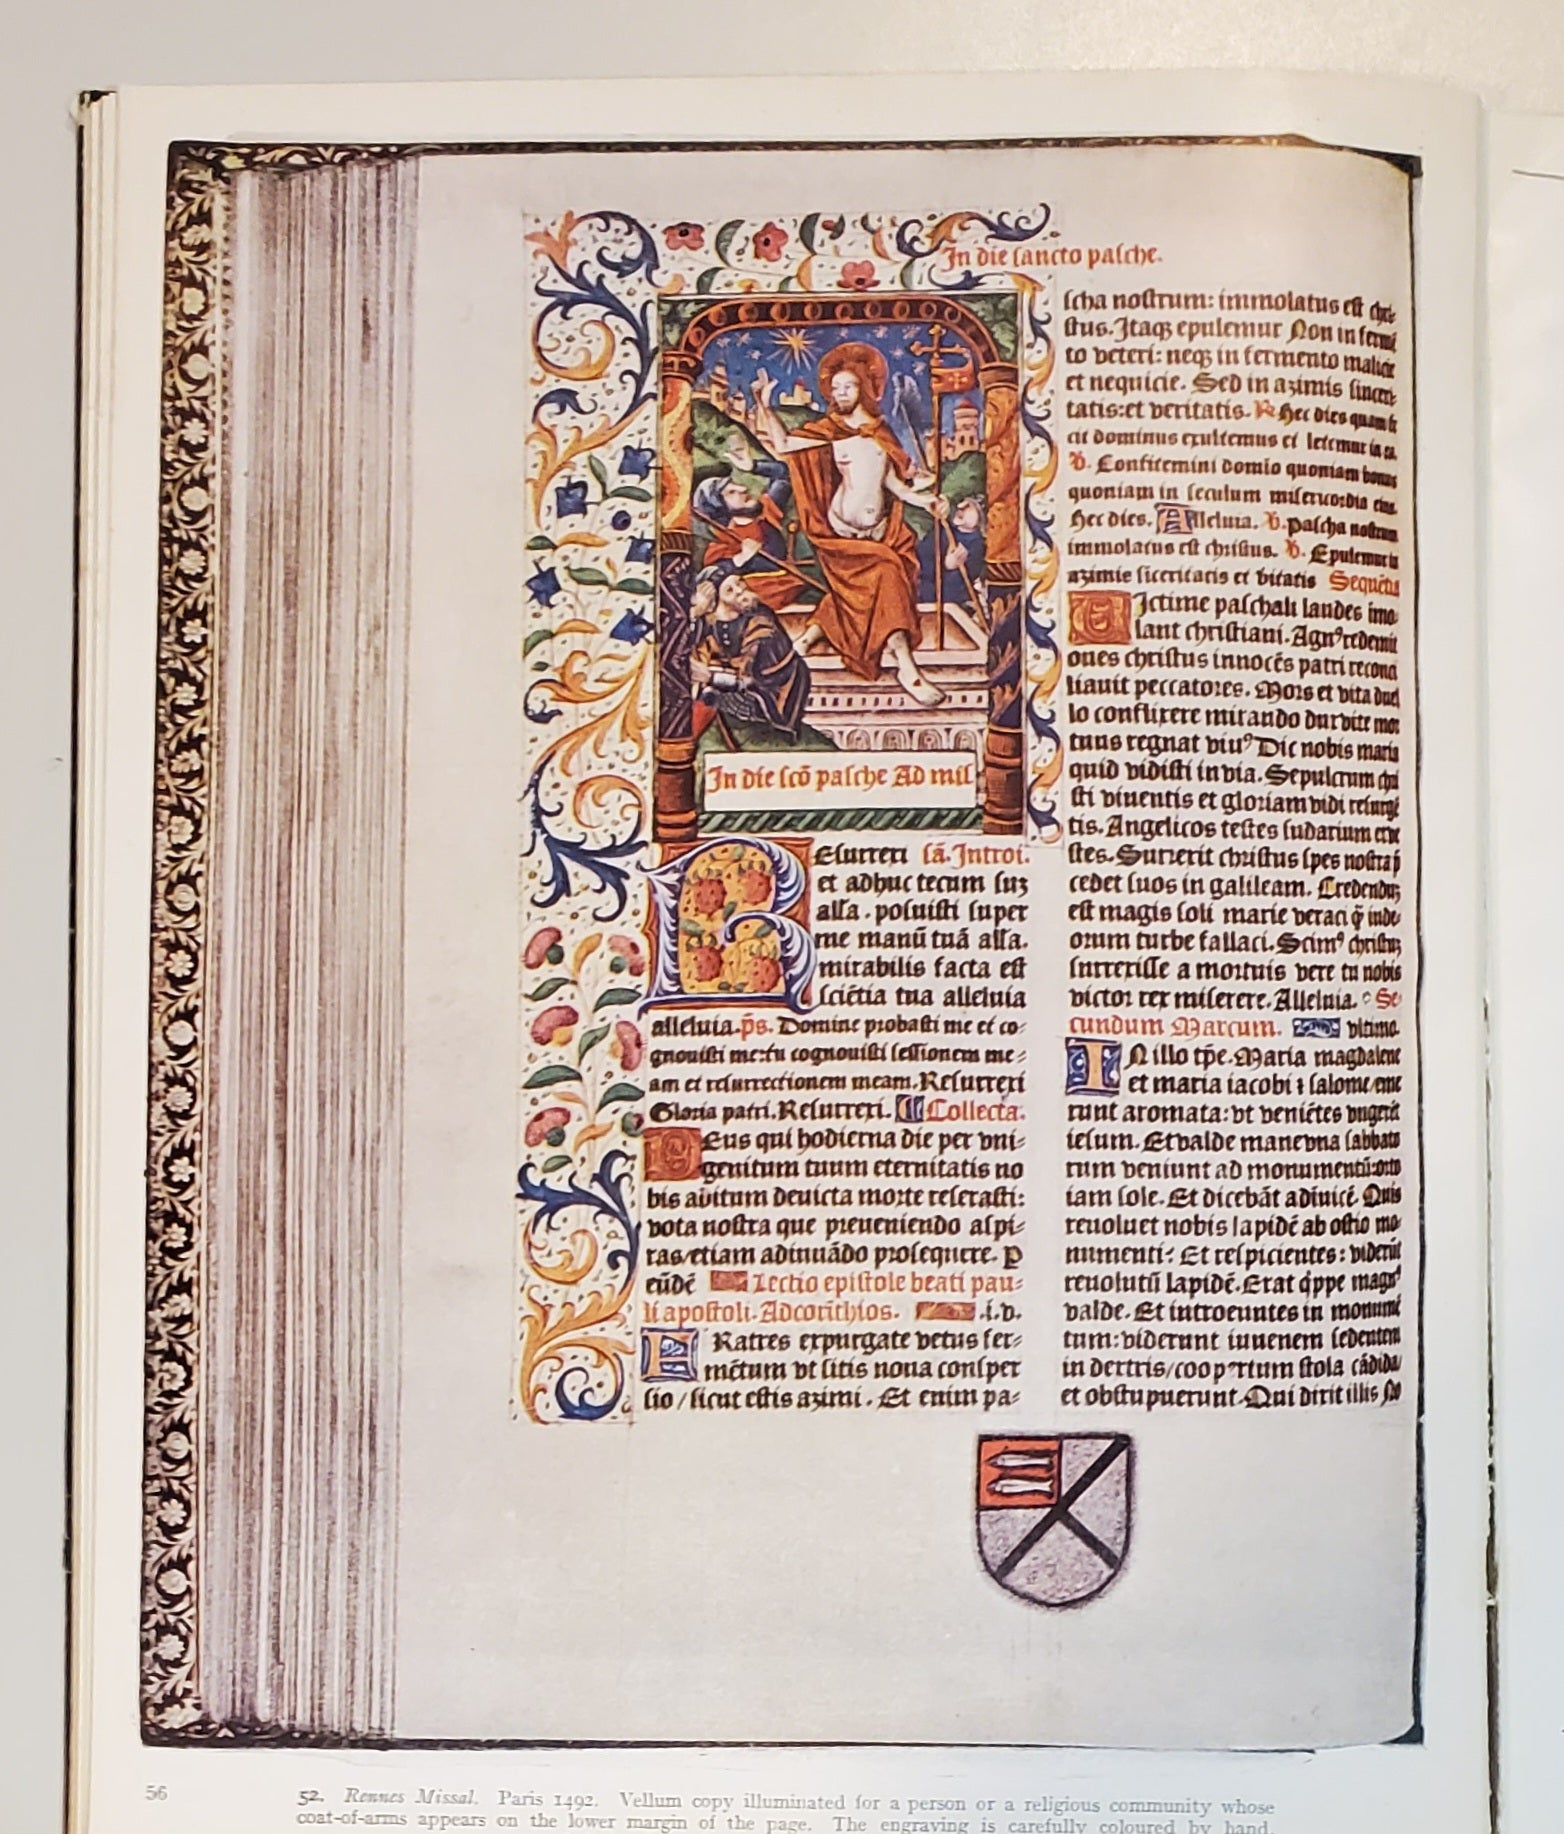 In die sancto pasche.
In die scō pasche Ad mis
Resurrexi sā. Introi.
et adhuc tecum suz
alla. posuisti super
me manū tuā alla.
mirabilis facta est
sciētia tua alleluia
alleluia. p̄s. Domine probasti me et co-
gnouisti me: tu cognouisti sessionem me-
am et resurrectionem meam. Resurrexi
Gloria patri. Resurrexi. Collecta.
Deus qui hodierna die per vni-
genitum tuum eternitatis no
bis aditum deuicta morte reserasti:
vota nostra que preueniendo aspi-
ras/etiam adiuuādo prosequere. P
eūdē Lectio epistole beati pau-
li apostoli. Ad corīthios. .i.v.
FRatres expurgate vetus fer-
mētum vt sitis noua consper
sio/sicut estis azimi. Et enim pa-
scha nostrum: immolatus est chri-
stus. Itaqȝ epulemur Non in fermē
to veteri: neqȝ in fermento malicie
et nequicie. Sed in azimis sinceri-
tatis: et veritatis. ℟ Hec dies quam fe
cit dominus exultemus et letemur in ea.
℣. Confitemini domīo quoniam bonus
quoniam in seculum misericordia eius.
Hec dies. Alleluia. ℣. Pascha nostrum
immolatus est christus. ℣. Epulemur in
azimis siceritatis et vitatis Sequētia
Victime paschali laudes imo
lant christiani. Agnꝰ redemit
oues christus innocēs patri reconci
liauit peccatores. Mors et vita duel
lo conflixere mirando dux vite mor
tuus regnat viuꝰ Dic nobis maria
quid vidisti in via. Sepulcrum chri
sti viuentis et gloriam vidi resurgē
tis. Angelicos testes sudarium et ve
stes. Surrexit christus spes nostra p̄
cedet suos in galileam. Credenduȝ
est magis soli marie veraci q̄ iude-
orum turbe fallaci. Scimꝰ christuȝ
surrexisse a mortuis vere tu nobis
victor rex miserere. Alleluia. Se-
cundum Marcum. vltimo.
IN illo tp̄e. Maria magdalene
et maria iacobi ⁊ salome/eme
runt aromata: vt veniētes vngerēt
iesum. Et valde mane vna sabbato
rum veniunt ad monumentū: orto
iam sole. Et dicebāt adīuicē. Quis
reuoluet nobis lapidē ab ostio mo-
numenti? Et respicientes: viderūt
reuolutū lapidē. Erat q̄ppe magnꝰ
valde. Et introeuntes in monumē
tum: viderunt iuuenem sedentem
in dextris/coopertum stola cādida/
et obstupuerunt. Qui dixit illis No
56
52. Rennes Missal. Paris 1492. Vellum copy illuminated for a person or a religious community whose
coat-of-arms appears on the lower margin of the page. The engraving is carefully coloured by hand.